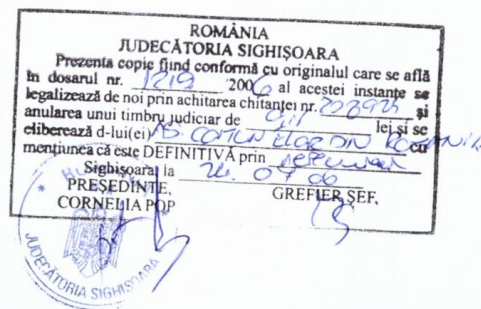 ROMÂNIA
JUDECĂTORIA SIGHIȘOARA
Prezenta copie fiind conformă cu originalul care se află
în dosarul nr. 1219 2006 al acestei instanțe se
legalizează de noi prin achitarea chitanței nr. și
anularea unui timbru judiciar de lei și se
eliberează d-lui(ei) AS. COMUNELOR DIN ROMÂNIA cu
mențiunea că este DEFINITIVĂ prin
Sighișoara la 24. 0
PREȘEDINTE, GREFIER ȘEF,
CORNELIA POP
JUDECĂTORIA SIGHIȘOARA